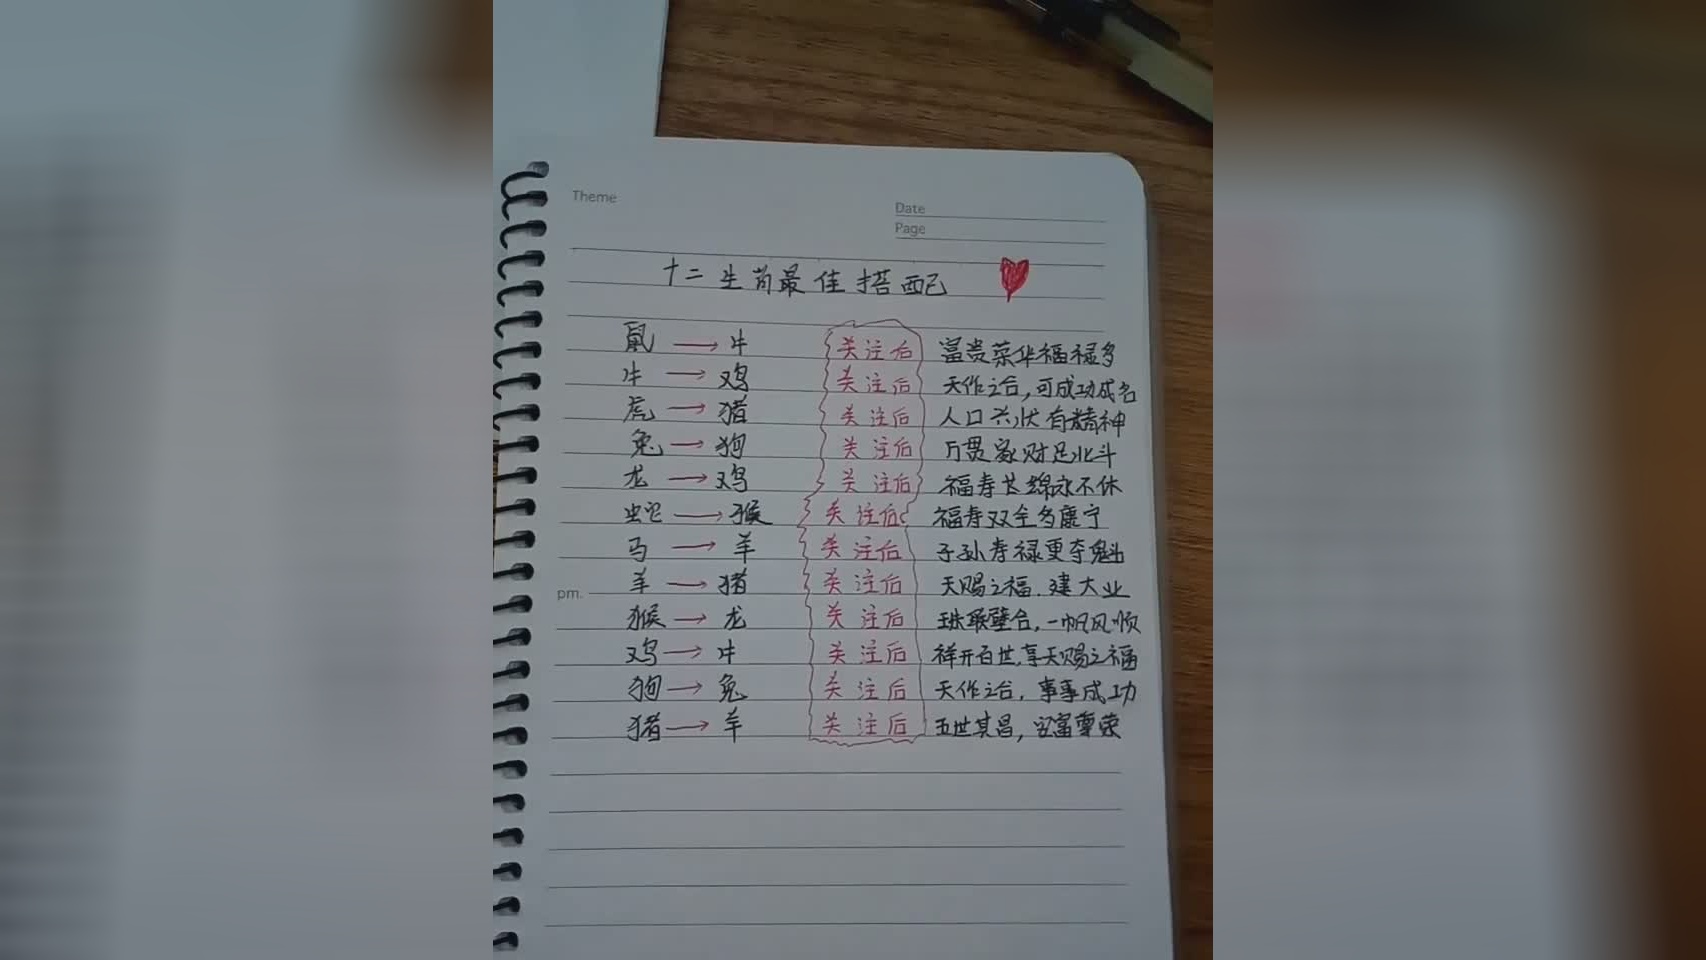 Theme
Date
Page
十二生肖最佳搭配
鼠 → 牛 关注后 富贵荣华福禄多
牛 → 鸡 关注后 天作之合,可成功成名
虎 → 猪 关注后 人口兴状有精神
兔 → 狗 关注后 万贯家财足北斗
龙 → 鸡 关注后 福寿长绵永不休
蛇 → 猴 关注后 福寿双全多康宁
马 → 羊 关注后 子孙寿禄更夺魁
pm.
羊 → 猪 关注后 天赐之福.建大业
猴 → 龙 关注后 珠联璧合,一帆风顺
鸡 → 牛 关注后 祥开百世,享天赐之福
狗 → 兔 关注后 天作之合,事事成功
猪 → 羊 关注后 五世其昌,安富尊荣